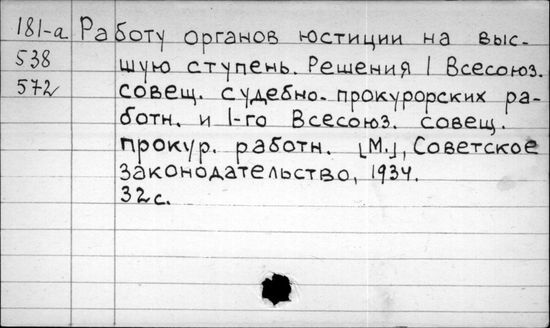 181-а Работу органов юстиции на выс-
538 шую ступень. Решения I Всесоюз.
572 совещ. судебно-прокурорских ра-
ботн. и I-го Всесоюз. совещ.
прокур. работн. [М.], Советское
законодательство, 1934.
32 с.